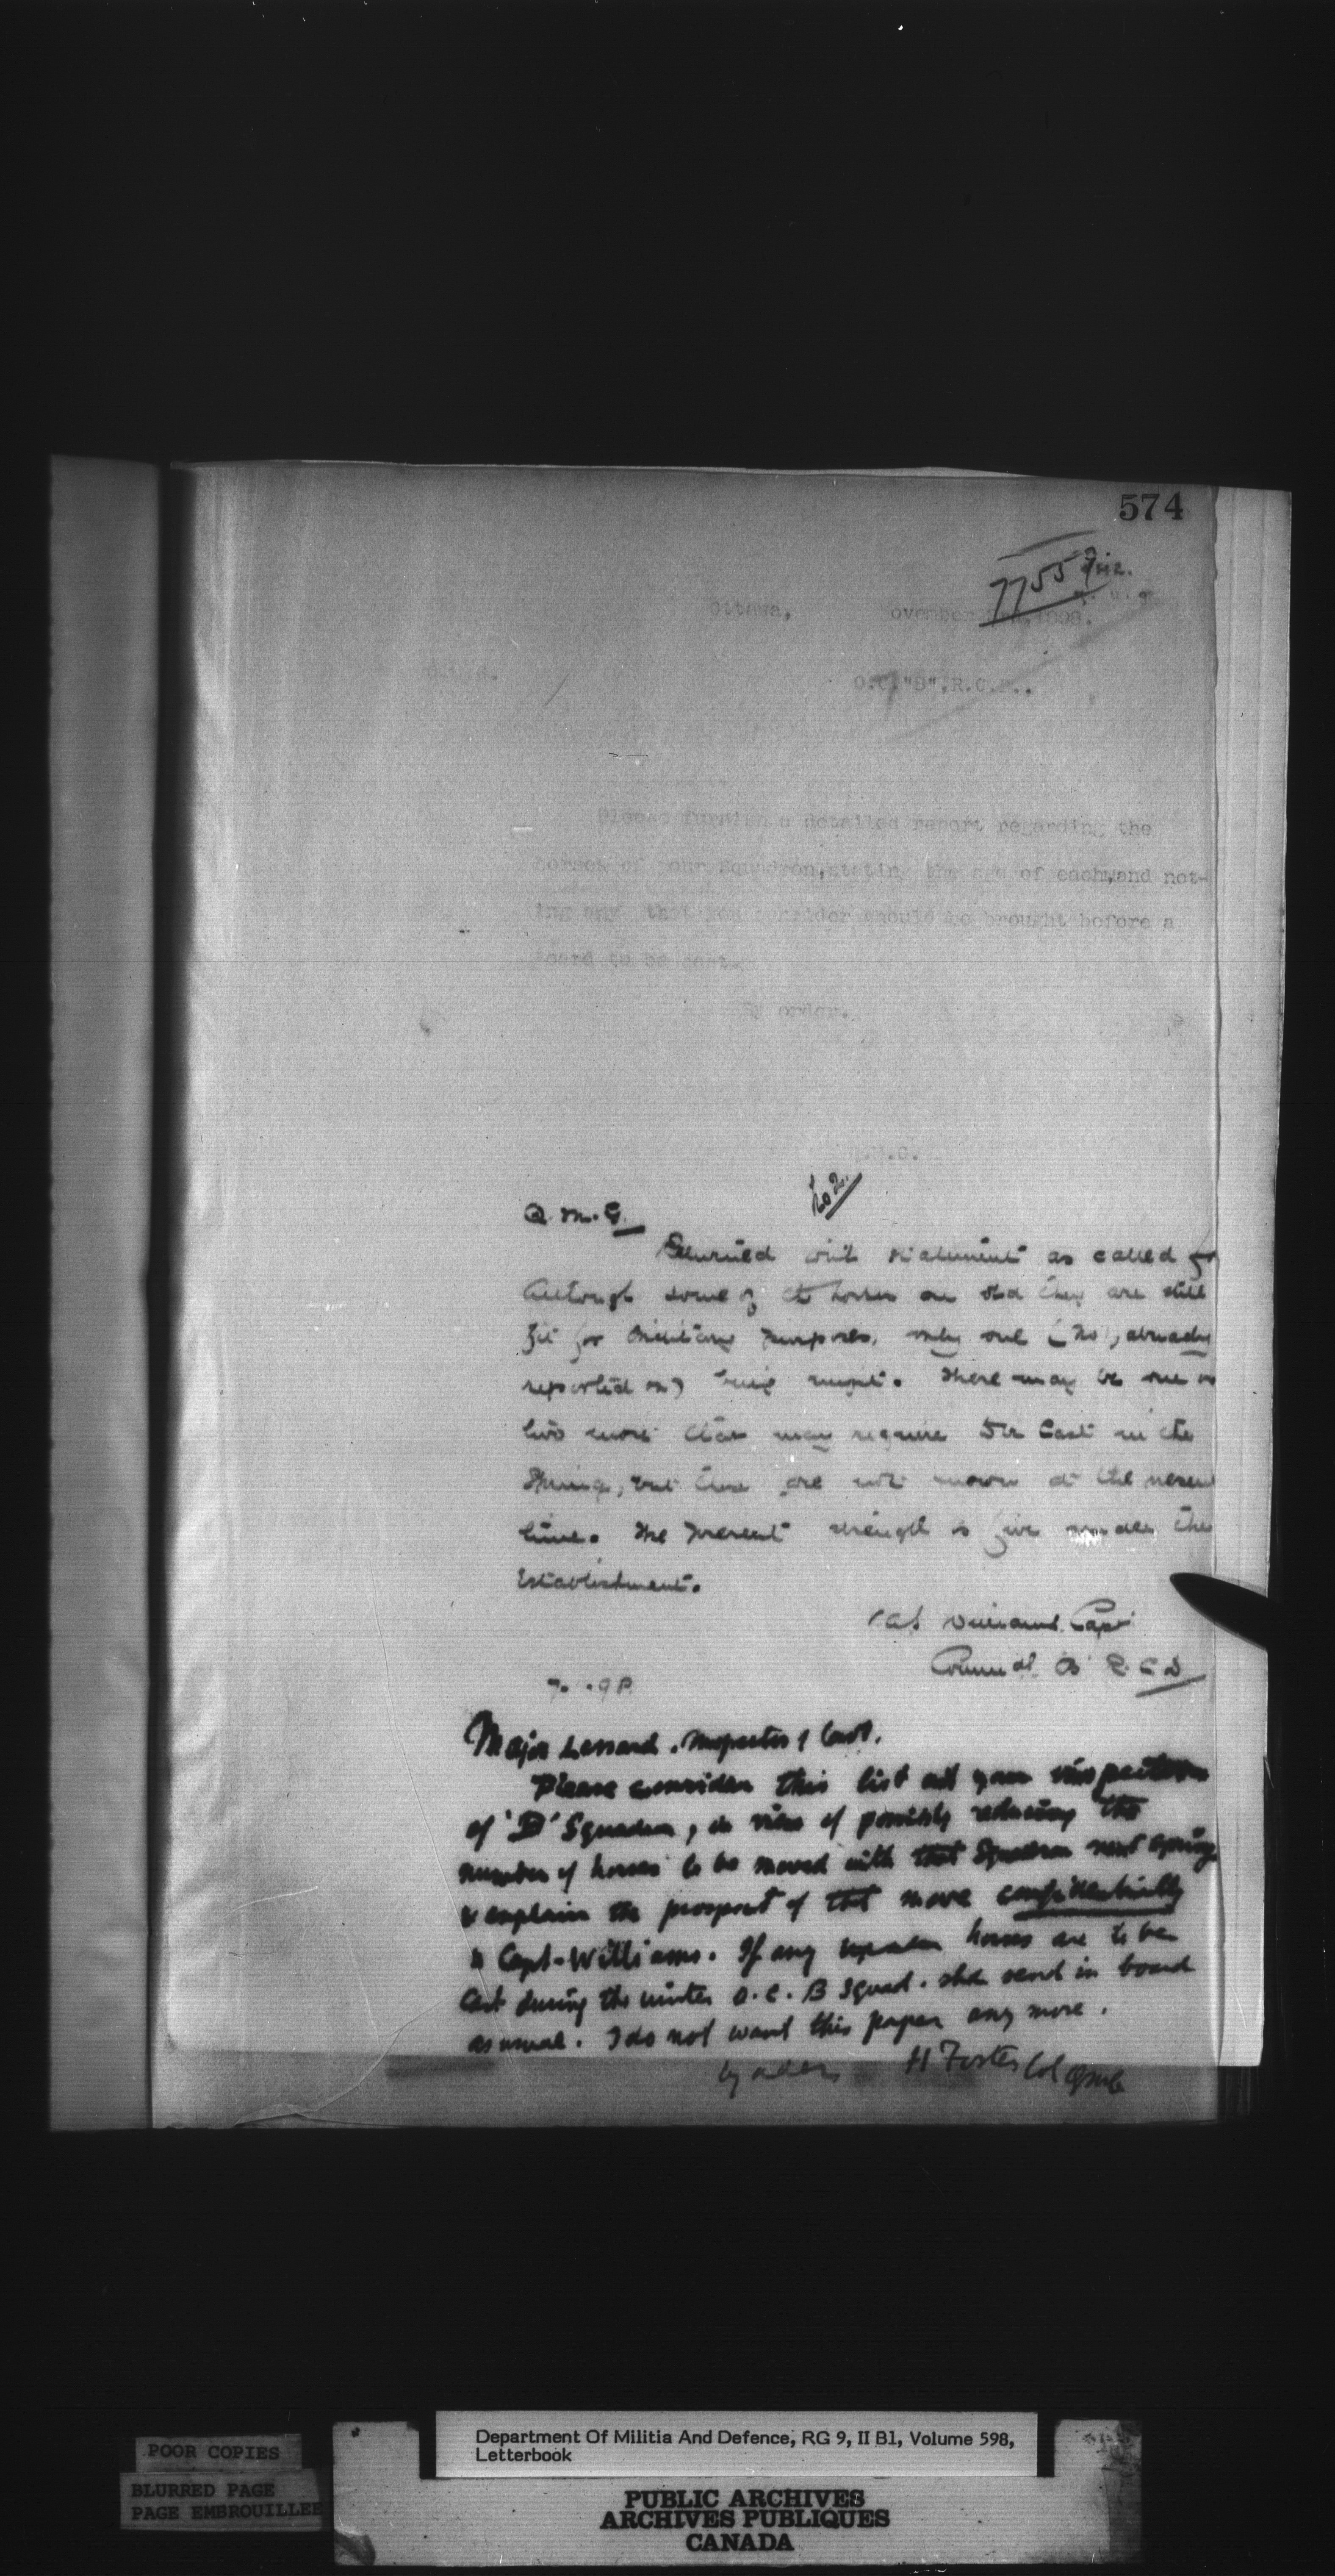 574
7755
Ottawa, ovember 1898.
O.C."B",R.C.D..
Please furnish a detailed report regarding the
horses of your squadron, stating the age of each, and not-
ing any that you consider should be brought before a
board to be cast.
By order.
Q.M.G.
No 2.
Q.M.G.
Returned with statement as called for
Although some of the horses are old they are still
fit for military purposes, only one (No 1, already
reported on) being unfit. There may be one or
two more that may require to be cast in the
Spring, but these are not known at the present
time. The present strength is five under the
Establishment.
Williams Capt
Commdt B R.C.D
98
Major Lessard. Inspector of Cav.
Please consider this list at your inspection
of 'B' Squadron, in view of possibly reducing the
number of horses to be moved with that Squadron next spring
& explain the prospect of that move confidentially
to Capt. Williams. If any horses are to be
cast during the winter O.C. B Squad. shd send in board
as usual. I do not want this paper any more.
by order H Foster Col QMG
Department Of Militia And Defence, RG 9, II B1, Volume 598,
Letterbook
POOR COPIES
BLURRED PAGE
PAGE EMBROUILLEE
PUBLIC ARCHIVES
ARCHIVES PUBLIQUES
CANADA